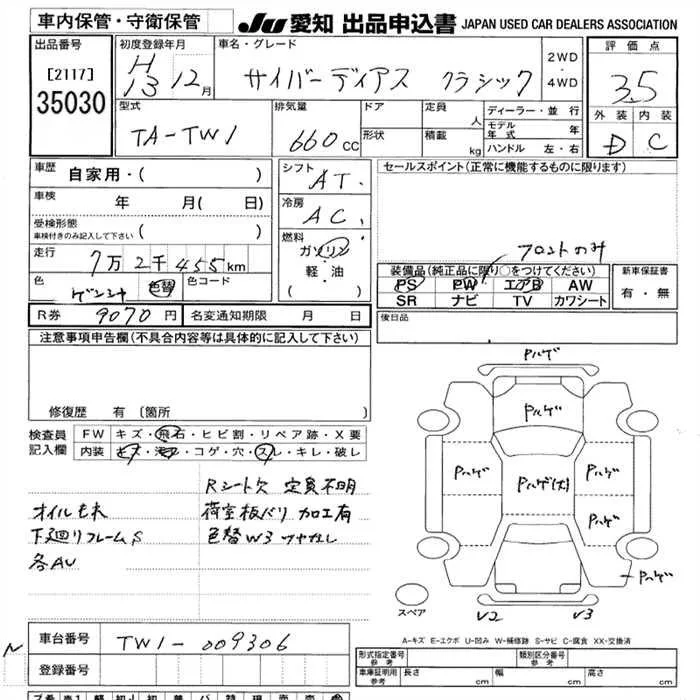 車内保管・守衛保管
JU 愛知 出品申込書 JAPAN USED CAR DEALERS ASSOCIATION
出品番号
[2117]
35030
初度登録年月
H
13 12月
車名・グレード
サイバーディアス クラシック
2WD
・
4WD
評価点
3.5
外装 内装
D C
型式
TA-TW1
排気量
660 cc
ドア
形状
定員
人
積載
kg
ディーラー・並行
モデル年式 年
ハンドル 左・右
車歴
自家用・( )
車検
年 月( 日)
受検形態
車検付きのみ記入して下さい
( )
走行
7万2千455km
色
ゲンシャ
色替
色コード
シフト
AT.
冷房
AC.
燃料
ガソリン
・
軽・油
( )
セールスポイント(正常に機能するものに限ります)
フロントのみ
装備品(純正品に限り○をつけてください)
PS PW エアB AW
SR ナビ TV カワシート
新車保証書
有・無
R券 9070円
名変通知期限 月 日
後日品
注意事項申告欄(不具合内容等は具体的に記入して下さい)
修復歴 有 〔箇所
検査員
記入欄
FW キズ・飛石・ヒビ割・リペア跡・X要
内装 キズ・汚れ・コゲ・穴・スレ・キレ・破レ
Rシート欠 定員不明
オイルもれ 荷室板バリ 加工有
下廻りフレームS 色替W3 ツヤなし
各AU
Pハゲ
Pハゲ
Pハゲ
Pハゲ(大)
Pハゲ
Pハゲ
Pハゲ
スペア
V2 V3
A-キズ E-エクボ U-凹み W-補修跡 S-サビ C-腐食 XX-交換済
N
車台番号
TW1-009306
登録番号
形式指定番号
参考
類別区分番号
参考
車庫証明用
参考
長さ cm
幅 cm
高さ cm